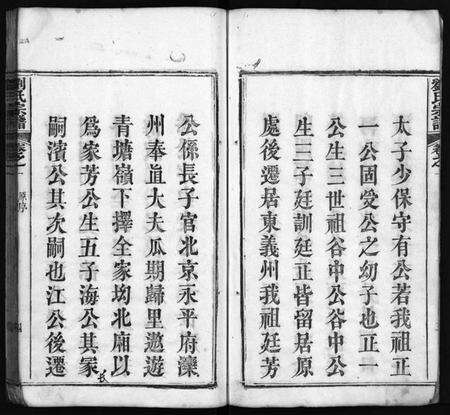 劉氏宗譜
卷之
太子少保守有公若我祖正
一公固受公之幼子也正一
公生三世祖谷中公谷中公
生三子廷訓廷正皆留居原
處後遷居東義州我祖廷芳
公係長子官北京永平府灤
州奉直大夫瓜期歸里遨遊
青塘嶺下擇全家坳北廟以
為家芳公生五子海公其冢
長
嗣濱公其次嗣也江公後遷
劉氏宗譜
卷之
原序